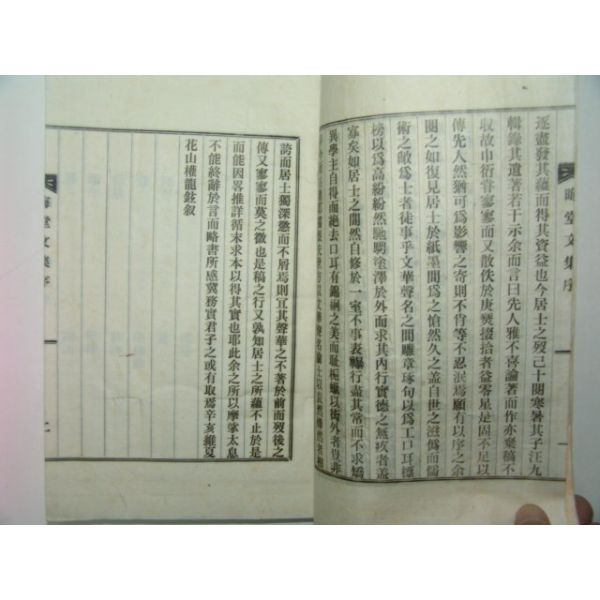 逐盡發其蘊而得其資益也今居士之歿已十閱寒暑其子汪九
輯錄其遺著若干示余而言曰先人雅不喜論著而作亦棄稿不
收故巾衍寥寥而又散佚於庚燹掇拾者益零星是固不足以
傳先人然猶可爲影響之寄則不肖等不忍泯焉願有以序之余
閱之如復見居士於紙墨間爲之愴然久之盖自世之滋僞而儒
術之敝爲士者徒事乎文華聲名之間雕章琢句以爲工口耳標
榜以爲高紛紛然馳騁塗澤於外面求其內行實德之無疚者盖
寡矣如居士之闇然自修於一室不事表曝行盡其常而不求矯
異學主自得而絕去口耳有錦褧之美而耻
以衒外者豈非
誇而居士獨深慾而不屑焉則宜其聲華之不著於前而歿後之
傳又寥寥而莫之徵也是稿之行又孰知居士之所蘊不止於是
而能因畧推詳循末求本以得其實也耶此余之所以摩挲太息
不能終辭於言而略書所感冀務實君子之或有取焉辛亥維夏
花山權龍鉉叙
晦堂文集序
晦堂文集序
二